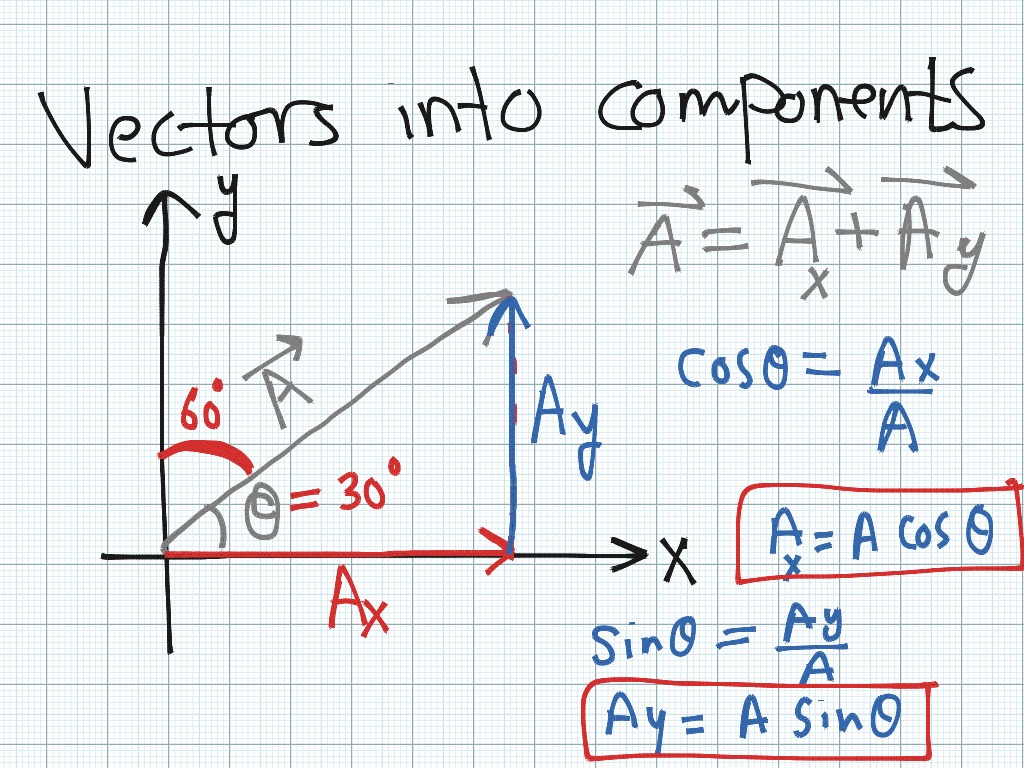 Vectors into components
y
A⃗ = A⃗x + A⃗y
A⃗
60°
cosθ = Ax/A
Ay
θ = 30°
Ax = A cos θ
x
Ax
sinθ = Ay/A
Ay = A sinθ